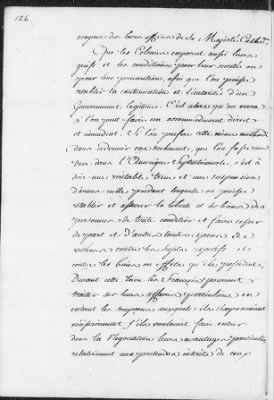 126.
moyen des bons offices de Sa Majesté Cath.
Que les Colonies exposent aussi leurs
griefs et les conditions pour leur sureté ou
pour leur precaution, afin que l'on puisse
etablir la continuation et l'autorité d'un
Gouvernement legitime. C'est alors que on verra
si l'on peut faire un accommodement direct
et immediat. Si l'on prefere cette même methode
dans
dans l'Amerique Septentrionale, c'est à
dire une veritable treve et une suspension
d'armes pendant laquelle on puisse
etablir et assurer la liberté et les biens des
personnes de toute condition et faire cesser
de part et d'autre toute espece de
violence contre les sujets respectifs et
contre les biens ou effets qu'ils possedent.
Durant cette treve les François pourront
traiter sur leurs affaires particulieres en
evitant les soupçons auxquels ils s'exposeroient
s'ils vouloient faire entrer
dans la Negociation leurs avantages particuliers
relativement aux pretendus interêts de ceux